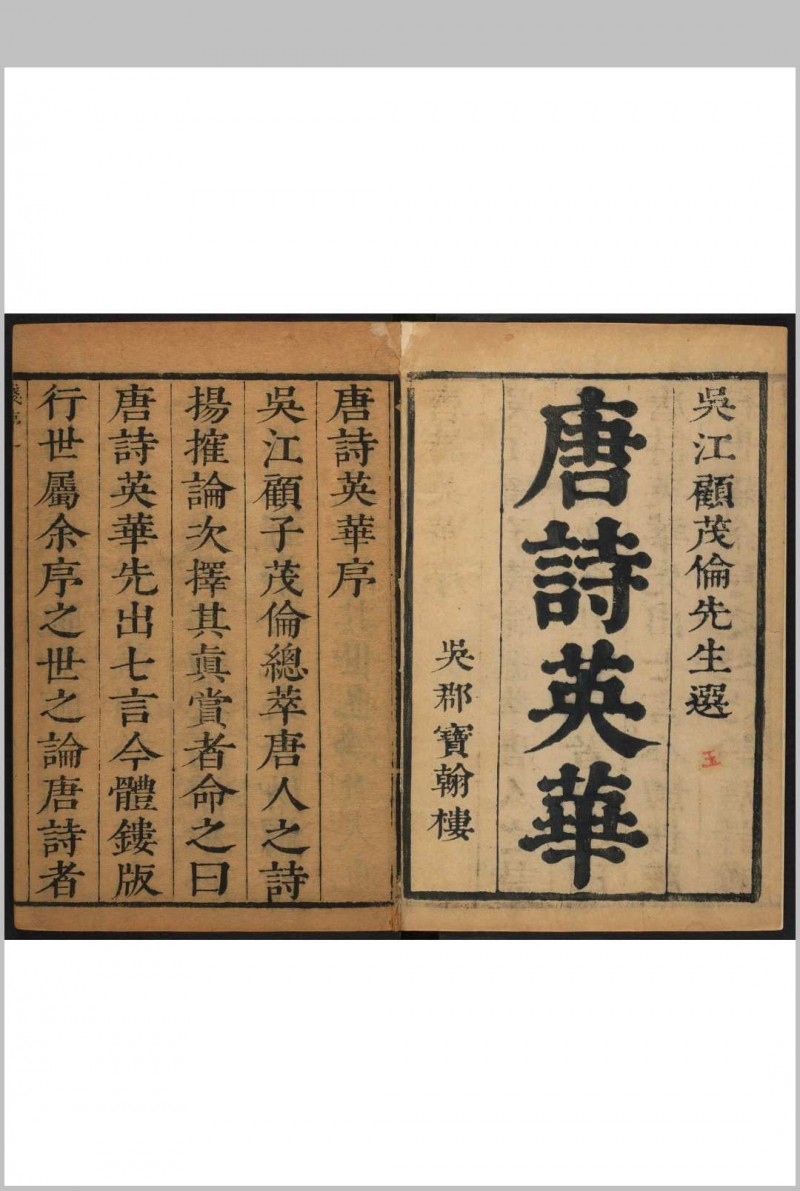 吳江顧茂倫先生選
玉
唐詩英華
吳郡寶翰樓
唐詩英華序
吳江顧子茂倫總萃唐人之詩
揚搉論次擇其眞賞者命之曰
唐詩英華先出七言今體鏤版
行世屬余序之世之論唐詩者